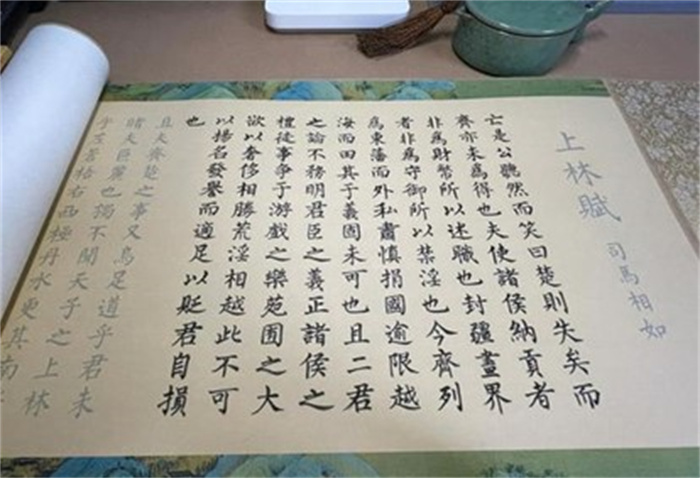 上林賦
司馬相如
亡是公聽然而笑曰楚則失矣而
齊亦未為得也夫使諸侯納貢者
非為財幣所以述職也封疆畫界
者非為守御所以禁淫也今齊列
為東藩而外私肅慎捐國逾限越
海而田其于義固未可也且二君
之論不務明君臣之義正諸侯之
禮徒事爭于游戲之樂苑囿之大
欲以奢侈相勝荒淫相越此不可
以揚名發譽而適足以貶君自損
也
且夫齊楚之事又烏足道乎君未
睹夫巨麗也獨不聞天子之上林
乎左蒼梧右西極丹水更其南